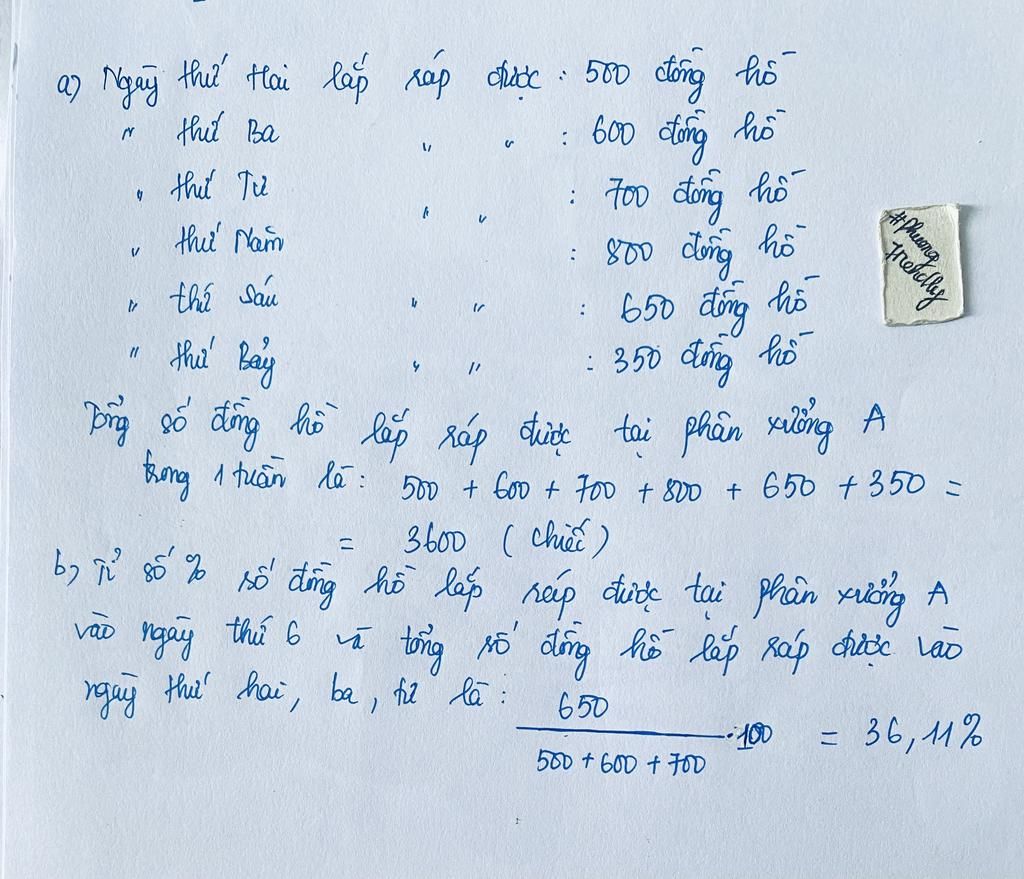 a) Ngày thứ Hai lắp ráp được : 500 đồng hồ
" thứ Ba " " : 600 đồng hồ
" thứ Tư " " : 700 đồng hồ
" thứ Năm : 800 đồng hồ
" thứ Sáu " " : 650 đồng hồ
" thứ Bảy " " : 350 đồng hồ
Tổng số đồng hồ lắp ráp được tại phân xưởng A
trong 1 tuần là : 500 + 600 + 700 + 800 + 650 + 350 =
= 3600 ( chiếc )
b) Tỉ số % số đồng hồ lắp ráp được tại phân xưởng A
vào ngày thứ 6 và tổng số đồng hồ lắp ráp được vào
ngày thứ hai, ba, tư là : 650 / 500 + 600 + 700 . 100 = 36,11%
#Phuong